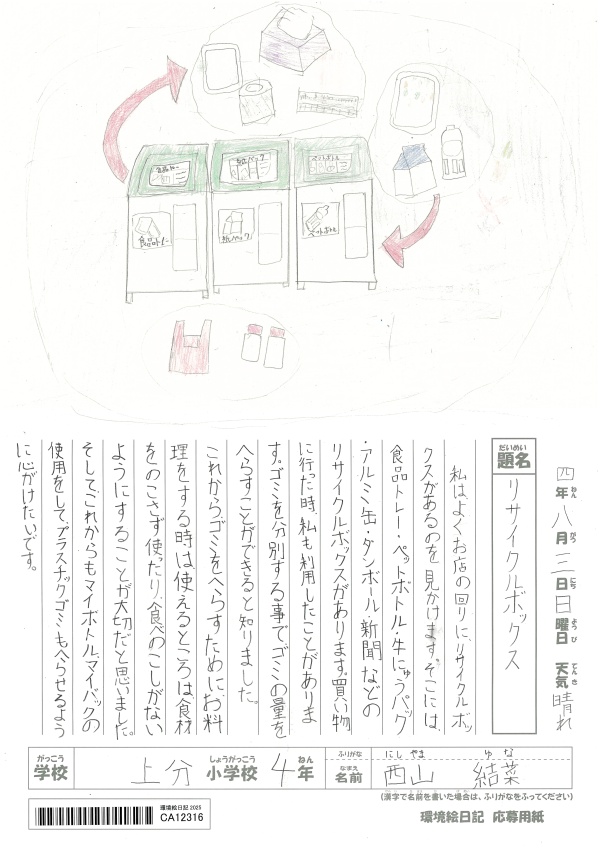 食品トレー
紙パック
ペットボトル
食品トレー
紙パック
ペットボトル
四年八月三日日曜日 天気晴れ
ねん がつ にち ようび てんき
だいめい
題名 リサイクルボックス
私はよくお店の回りに、リサイクルボッ
クスがあるのを見かけます。そこには、
食品トレー・ペットボトル・牛にゅうパック
・アルミ缶・ダンボール・新聞などの
リサイクルボックスがあります。買い物
に行った時、私も利用したことがありま
す。ゴミを分別する事で、ゴミの量を
へらすことができると知りました。
これから、ゴミをへらすために、お料
理をする時は使えるところは食材
をのこさず使ったり、食べのこしがない
ようにすることが大切だと思いました。
そしてこれからもマイボトル、マイバックの
使用をして、プラスチックゴミもへらせるよう
に心がけたいです。
がっこう しょうがっこう ねん
学校 上分 小学校 4年
ふりがな にしやま ゆな
なまえ
名前 西山 結菜
(漢字で名前を書いた場合は、ふりがなをふってください)
環境絵日記 2025
CA12316
環境絵日記 応募用紙